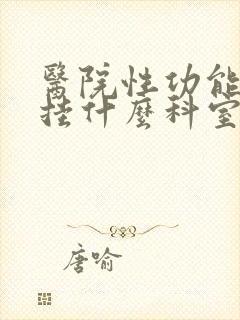 醫院性功能
挂什麼科室
唐喻